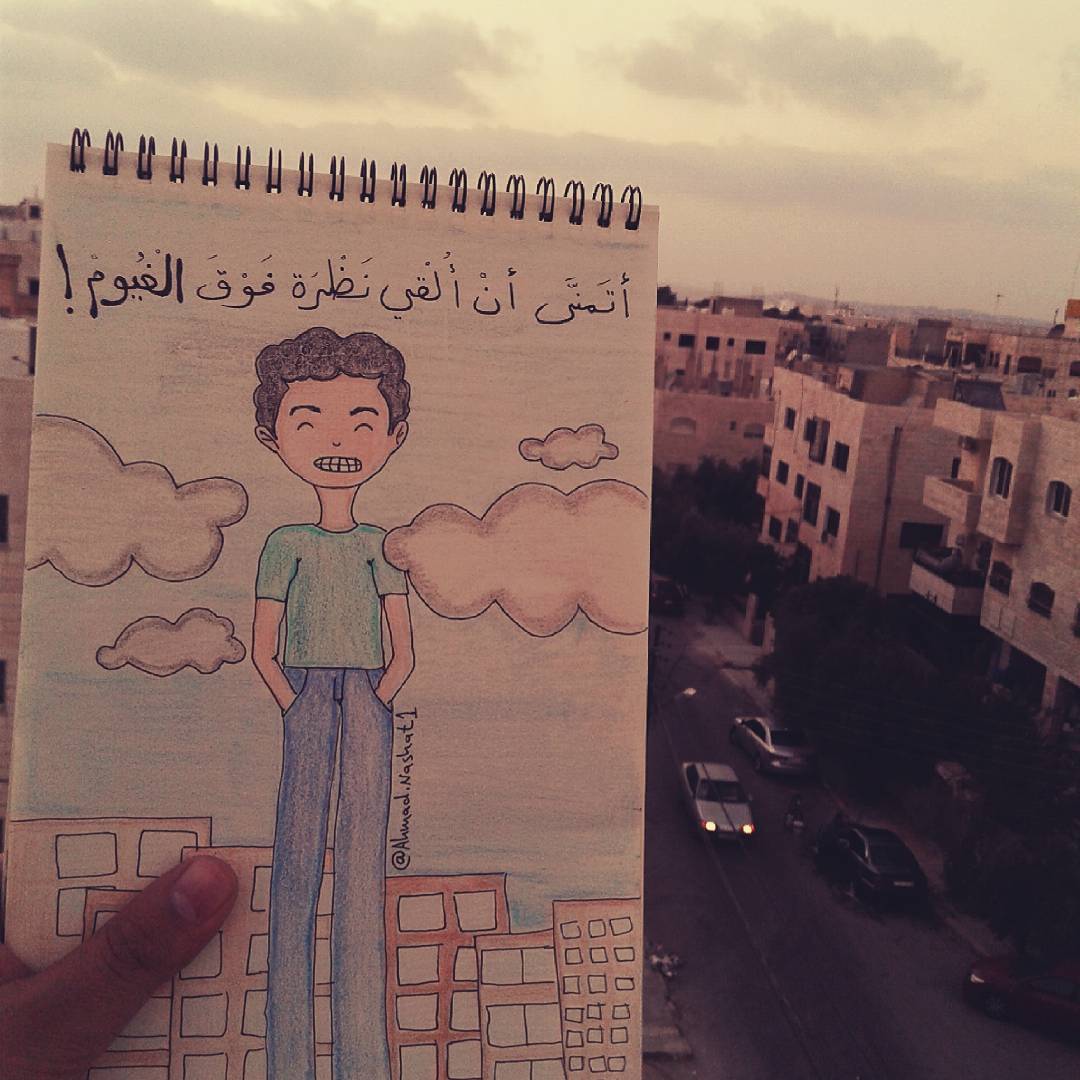 أتَمنَّى أنْ أُلْقي نَظْرَة فَوْقَ الْغُيُومْ !
@Ahmad.Nashat1